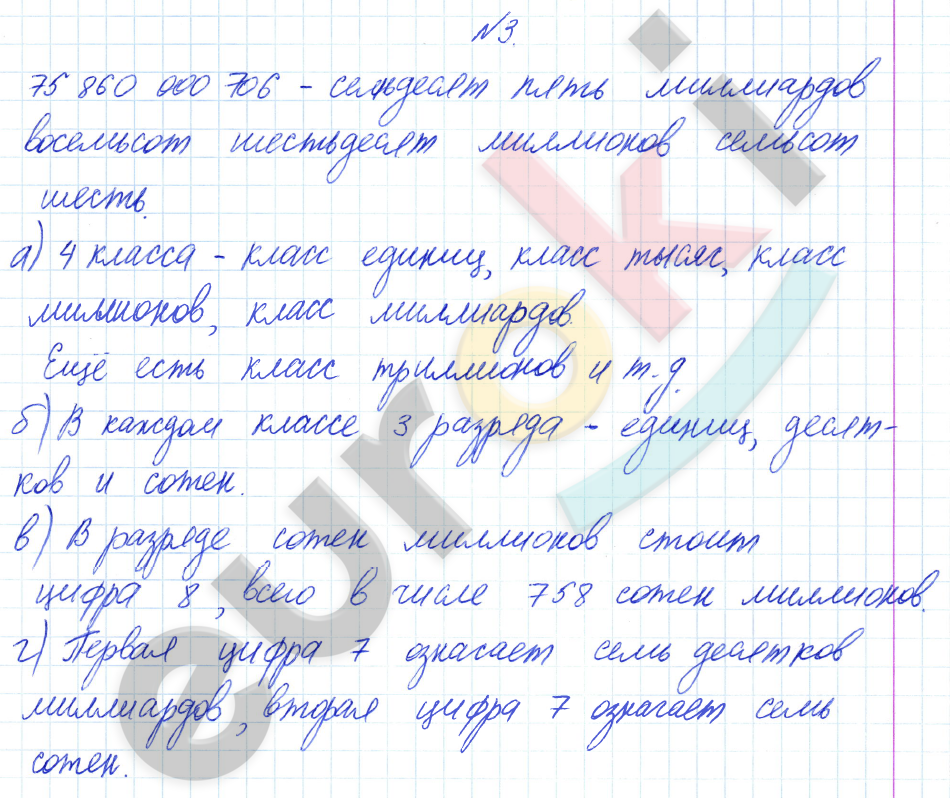 №3.
75 860 000 706 - семьдесят пять миллиардов
восемьсот шестьдесят миллионов семьсот
шесть.
а) 4 класса - класс единиц, класс тысяч, класс
миллионов, класс миллиардов.
Ещё есть класс триллионов и т.д.
б) В каждом классе 3 разряда - единиц, десят-
ков и сотен.
в) В разряде сотен миллионов стоит
цифра 8, всего в числе 758 сотен миллионов.
г) Первая цифра 7 означает семь десятков
миллиардов, вторая цифра 7 означает семь
сотен.
euroki